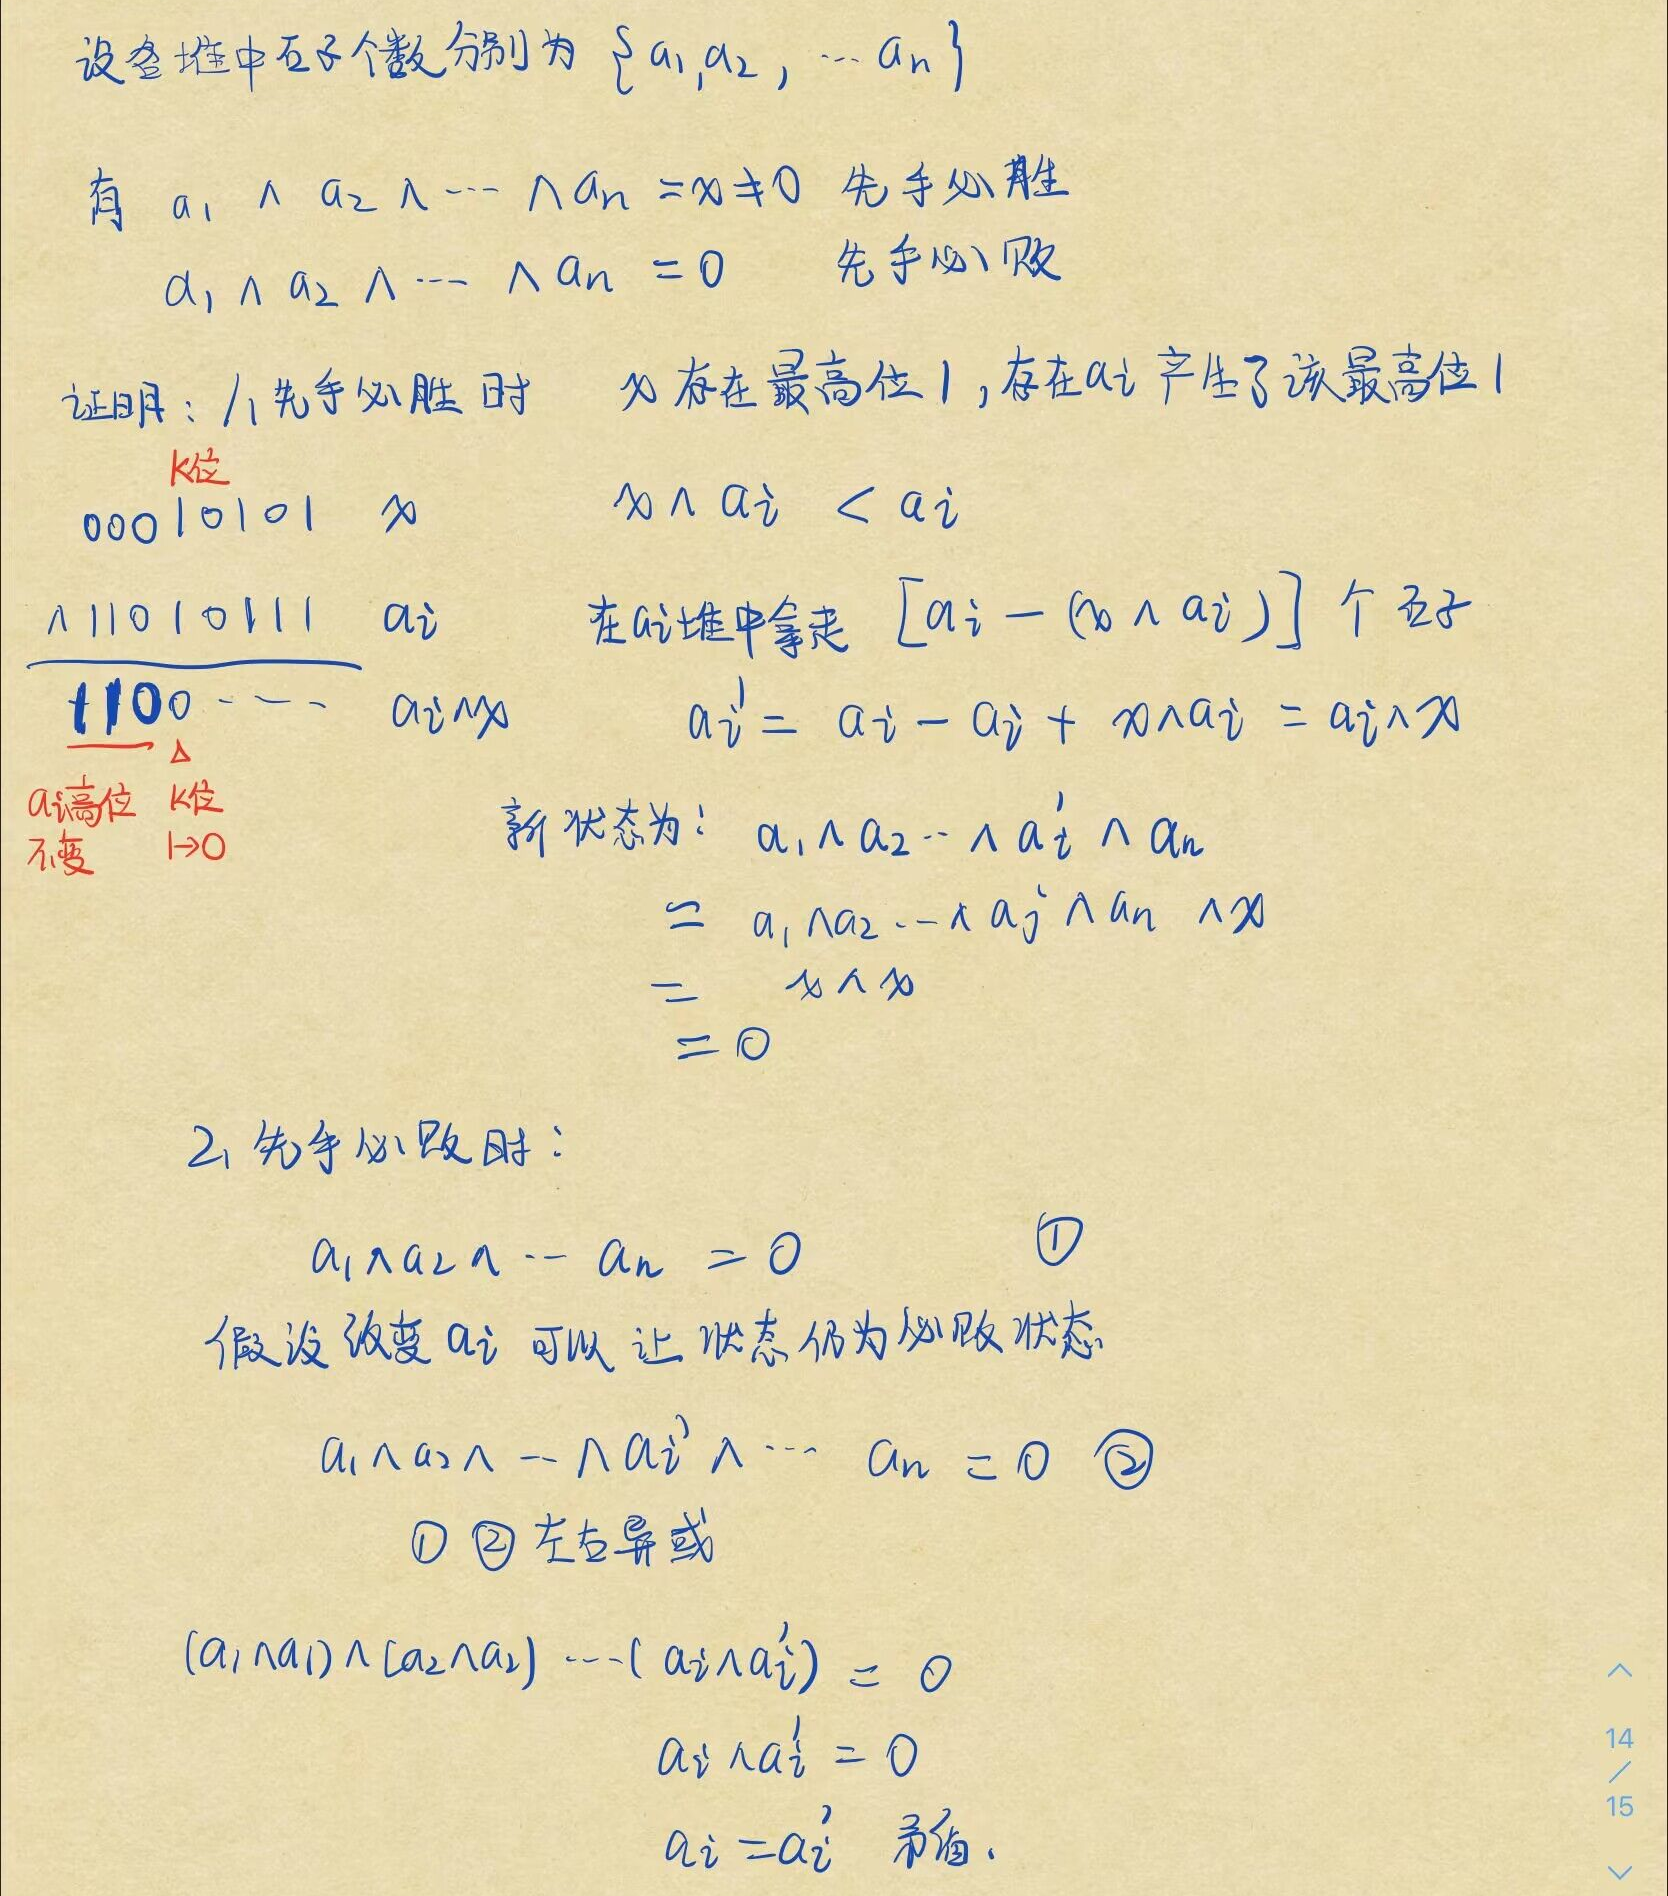 设各堆中石子个数分别为 {a₁,a₂, … aₙ}
有 a₁ ∧ a₂ ∧ … ∧ aₙ = x ≠ 0 先手必胜
a₁ ∧ a₂ ∧ … ∧ aₙ = 0 先手必败
证明: 1, 先手必胜时 x存在最高位1,存在aᵢ产生了该最高位1
K位
00010101 x x ∧ aᵢ < aᵢ
∧ 11010111 aᵢ 在aᵢ堆中拿走 [aᵢ - (x ∧ aᵢ)] 个石子
1100 ---- aᵢ∧x aᵢ' = aᵢ - aᵢ + x∧aᵢ = aᵢ∧x
aᵢ高位 K位
不变 1→0
新状态为: a₁∧a₂ … ∧ aᵢ' ∧ aₙ
= a₁∧a₂ … ∧ aᵢ ∧ aₙ ∧x
= x∧x
= 0
2, 先手必败时:
a₁∧a₂∧ … aₙ = 0 ①
假设改变aᵢ可以让状态仍为必败状态
a₁∧a₂∧ … ∧aᵢ'∧ … aₙ = 0 ②
① ② 左右异或
(a₁∧a₁)∧(a₂∧a₂) …(aᵢ∧aᵢ') = 0
aᵢ∧aᵢ' = 0
aᵢ = aᵢ' 矛盾.
14
/
15